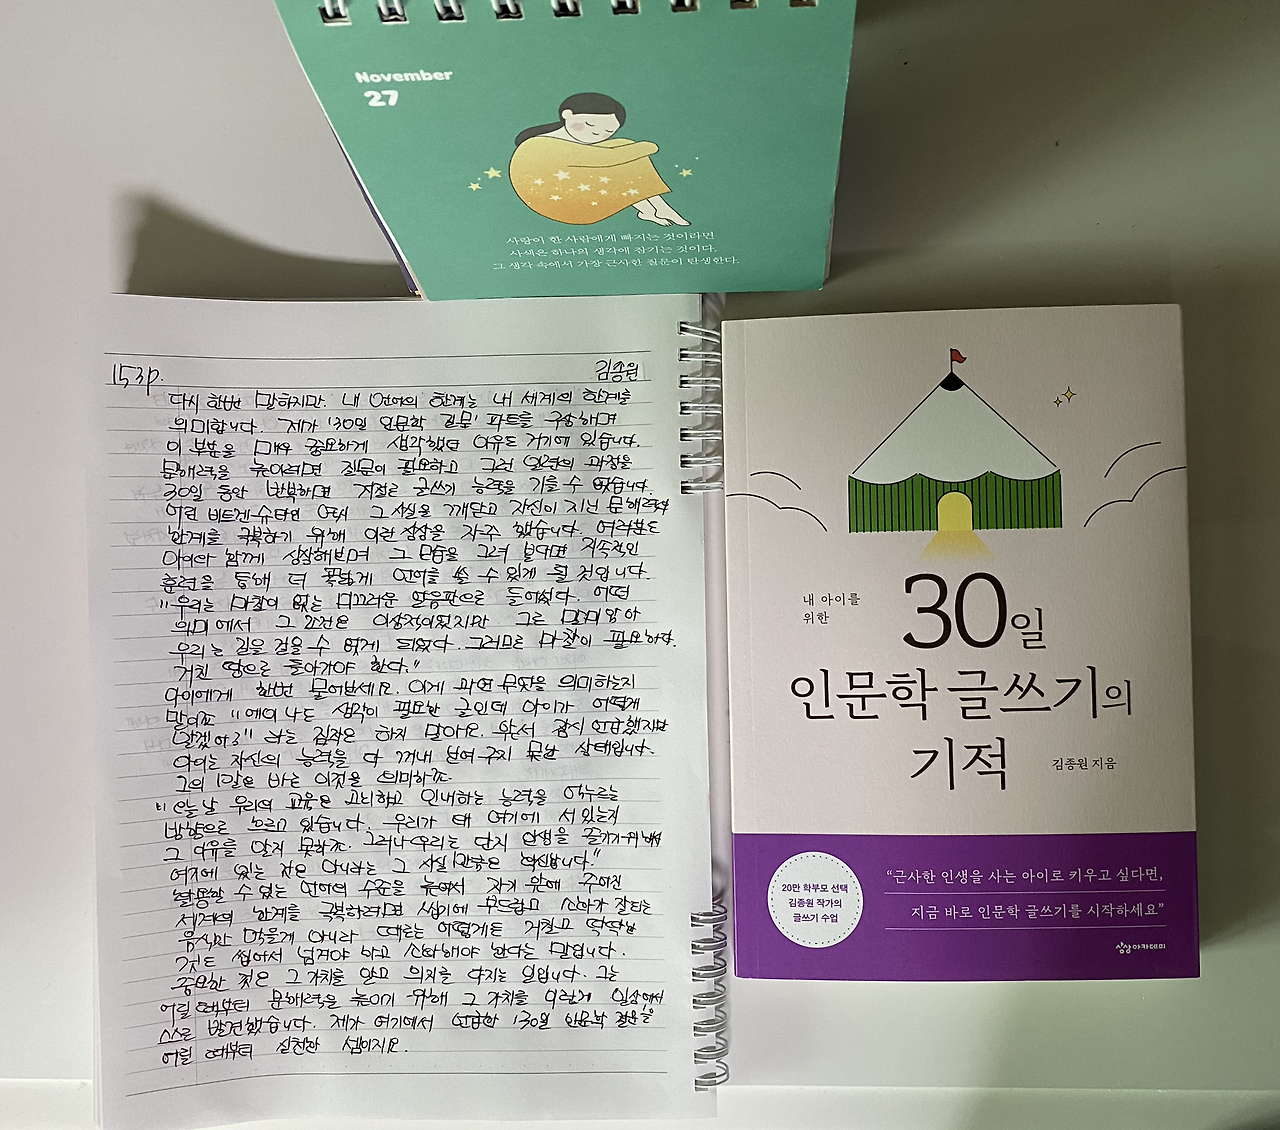 November
27
사랑이 한 사람에게 빠지는 것이라면
사색은 하나의 생각에 잠기는 것이다.
그 생각 속에서 가장 근사한 질문이 탄생한다.
153p.
김종원
다시 한번 말하지만, 내 언어의 한계는 내 세계의 한계를
의미합니다. 제가 '30일 인문학 질문' 파트를 구상하며
이 부분을 매우 중요하게 생각했던 이유도 거기에 있습니다.
문해력을 높이려면 질문이 필요하고 그런 일련의 과정을
30일 동안 반복하면 저절로 글쓰기 능력을 기를 수 있습니다.
어린 비트겐슈타인 역시 그 사실을 깨닫고 자신이 지닌 문해력의
한계를 극복하기 위해 이런 상상을 자주 했습니다. 여러분도
아이와 함께 상상해보며 그 모습을 그려 본다면 지속적인
훈련을 통해 더 폭넓게 언어를 쓸 수 있게 될 것입니다.
"우리는 마찰이 없는 미끄러운 얼음판으로 들어섰다. 어떤
의미에서 그 조건은 이상적이었지만 그로 말미암아
우리는 길을 걸을 수 없게 되었다. 그러므로 마찰이 필요하다.
거친 땅으로 돌아가야 한다."
아이에게 한번 물어보세요. 이게 과연 무엇을 의미하는지
말이죠. "에이 나도 생각이 필요한 글인데 아이가 어떻게
알겠어?" 라는 짐작은 하지 말아요. 앞서 잠시 언급했지만
아이는 자신의 능력을 다 꺼내 보여 주지 못한 상태입니다.
그의 말은 바로 이것을 의미하죠.
"오늘날 우리의 교육은 고뇌하고 인내하는 능력을 억누르는
방향으로 흐르고 있습니다. 우리가 왜 여기에 서 있는지
그 이유를 알지 못하죠. 그러나 우리는 단지 인생을 즐기기 위해서
여기에 있는 것은 아니라는 그 사실 만큼은 확실합니다."
활용할 수 있는 언어의 수준을 높여서 자기 앞에 주어진
세계의 한계를 극복하려면 씹기에 부드럽고 소화가 잘되는
음식만 먹을게 아니라 때로는 어떻게든 거칠고 딱딱한
것도 씹어서 넘겨야 하고 소화해야 한다는 말입니다.
중요한 것은 그 가치를 알고 의지를 다지는 일입니다. 그는
어릴 때부터 문해력을 높이기 위해 그 가치를 이렇게 일상에서
스스로 발견했습니다. 제가 여기에서 언급한 '30일 인문학 질문'을
어릴 때부터 실천한 셈이지요.
내 아이를
위한
30일
인문학 글쓰기의
기적
김종원 지음
20만 학부모 선택
김종원 작가의
글쓰기 수업
"근사한 인생을 사는 아이로 키우고 싶다면,
지금 바로 인문학 글쓰기를 시작하세요"
상상아카데미